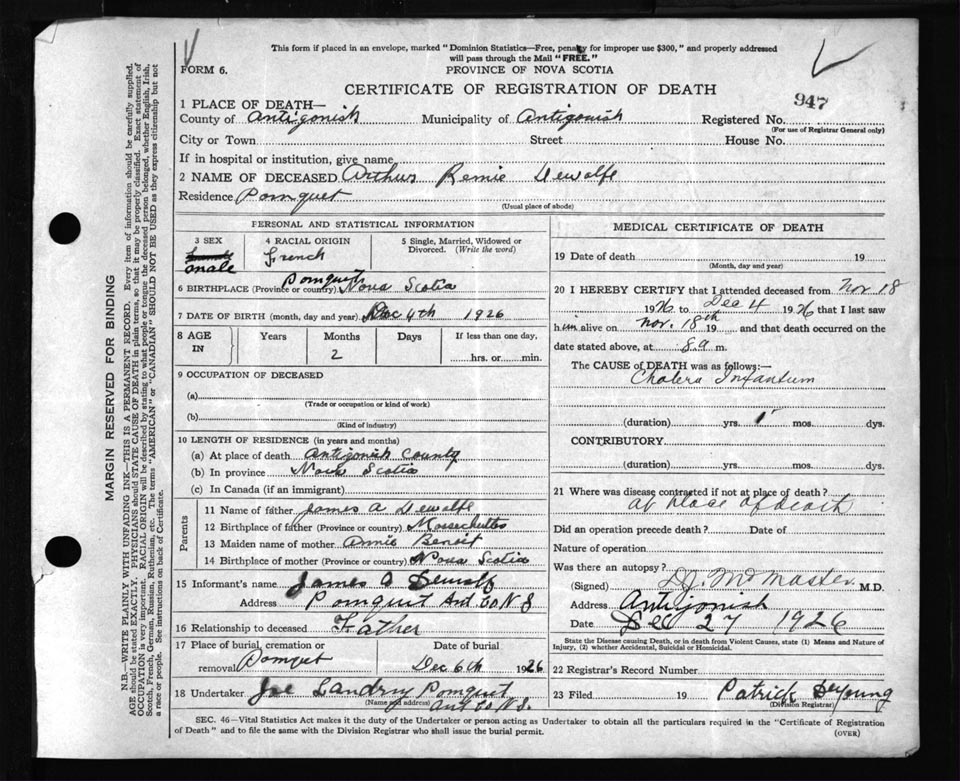 This form if placed in an envelope, marked "Dominion Statistics—Free, penalty for improper use $300," and properly addressed
will pass through the Mail "FREE."
FORM 6.
PROVINCE OF NOVA SCOTIA
CERTIFICATE OF REGISTRATION OF DEATH
947
1 PLACE OF DEATH—
County of Antigonish Municipality of Antigonish Registered No.
(For use of Registrar General only)
City or Town Street House No.
If in hospital or institution, give name
2 NAME OF DECEASED Arthur Remie Dewolfe
Residence Pomquet
(Usual place of abode)
MARGIN RESERVED FOR BINDING
N.B.—WRITE PLAINLY WITH UNFADING INK—THIS IS A PERMANENT RECORD. Every item of information should be carefully supplied.
AGE should be stated EXACTLY. PHYSICIANS should STATE CAUSE OF DEATH in plain terms, so that it may be properly classified. Exact statement of
OCCUPATION is very important. RACIAL ORIGIN will be described by stating to what people or tongue the deceased person belonged, whether English, Irish,
Scotch, French, German, Russian, Ruthenian, etc. The terms "AMERICAN" or "CANADIAN" SHOULD NOT BE USED as they express citizenship but not
a race or people. See instructions on back of Certificate.
PERSONAL AND STATISTICAL INFORMATION
3 SEX
male
4 RACIAL ORIGIN
French
5 Single, Married, Widowed or
Divorced. (Write the word)
Pomquet
6 BIRTHPLACE (Province or country) Nova Scotia
7 DATE OF BIRTH (month, day and year) Dec 4th 1926
8 AGE IN Years Months Days If less than one day,
2 hrs. or min.
9 OCCUPATION OF DECEASED
(a)
(Trade or occupation or kind of work)
(b)
(Kind of industry)
10 LENGTH OF RESIDENCE (in years and months)
(a) At place of death Antigonish County
(b) In province Nova Scotia
(c) In Canada (if an immigrant)
Parents
11 Name of father James A Dewolfe
12 Birthplace of father (Province or country) Massechutts
13 Maiden name of mother Annie Benoit
14 Birthplace of mother (Province or country) Nova Scotia
15 Informant's name James A Dewolf
Address Pomquit Ant Co N S
16 Relationship to deceased Father
17 Place of burial, cremation or Date of burial
removal Pomquet Dec 6th 1926
18 Undertaker Joe Landry Pomquit
(Name and address) Ant Co N.S.
MEDICAL CERTIFICATE OF DEATH
19 Date of death 19
(Month, day and year)
20 I HEREBY CERTIFY that I attended deceased from Nov 18
1926 to Dec 4 1926 that I last saw
him alive on Nov. 18th 19 and that death occurred on the
date stated above, at 8 a m.
The CAUSE of DEATH was as follows:—
Cholera Infantum
(duration) yrs. 1 mos. dys.
CONTRIBUTORY
(duration) yrs. mos. dys.
21 Where was disease contracted if not at place of death?
At place of death
Did an operation precede death? Date of
Nature of operation
Was there an autopsy?
(Signed) D.J. McMaster M.D.
Address Antigonish
Date Dec 27 1926
State the Disease causing Death, or in death from Violent Causes, state (1) Means and Nature of
Injury, (2) whether Accidental, Suicidal or Homicidal.
22 Registrar's Record Number
23 Filed 19 Patrick DeYoung
(Division Registrar)
SEC. 46—Vital Statistics Act makes it the duty of the Undertaker or person acting as Undertaker to obtain all the particulars required in the "Certificate of Registration
of Death" and to file the same with the Division Registrar who shall issue the burial permit.
(OVER)